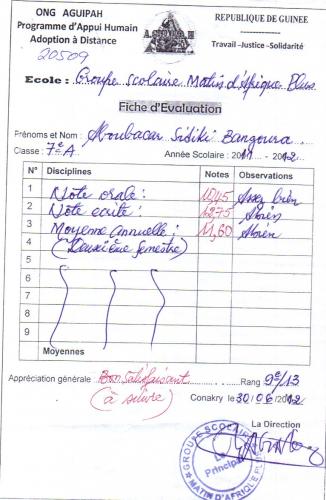 ONG AGUIPAH
Programme d'Appui Humain
Adoption à Distance
REPUBLIQUE DE GUINEE
Travail -Justice -Solidarité
20509
Ecole : Groupe Scolaire Matin d'Afrique Plus
Fiche d'Evaluation
Prénoms et Nom : Aboubacar Sidiki Bangoura
Classe : 7e A Année Scolaire : 2011 - 2012
N° Disciplines Notes Observations
1 Note orale : 10,45 Assez bien
2 Note écrite : 12,75 A.bien
3 Moyenne Annuelle : 11,60 A.bien
4 (Deuxième semestre)
5
6
7
8
9
Moyennes
Appréciation générale : Bon. Satisfaisant Rang : 9e/13
(à suivre) Conakry le 30/06/2012
La Direction
GROUPE SCOLAIRE
Le Principal
MATIN D'AFRIQUE PLUS